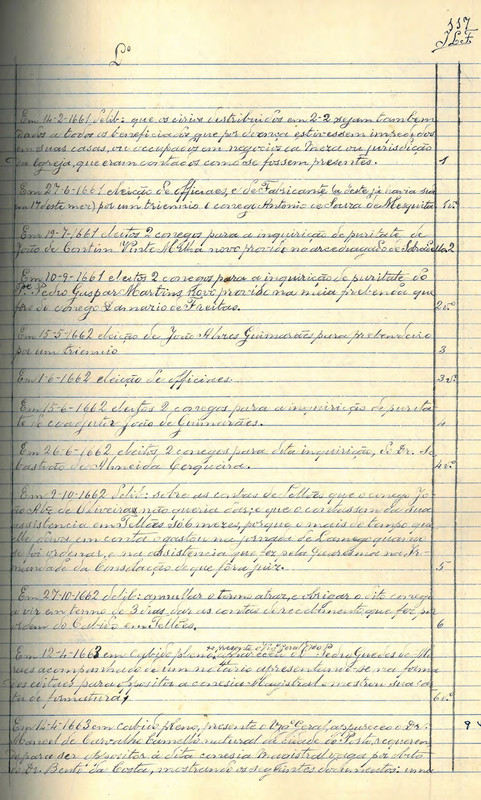 117
L.º
Em 14-2-1661 delib: que os virios destribuidos em 2-2 sejam tambem
dados a todos os beneficiados que por doença estivessem impedidos
em suas casas, ou occupados em negocios da Meza ou jurisdicção
da Igreja, que eram contados como se fossem presentes. 1
Em 27-6-1661 eleição de officiaes, e de Fabricante (a deste já havia sido
em 17 deste mez) por um triennio o conego Antonio de Faria de Mesquita 1vº.
Em 19-7-1661 eleitos 2 conegos para a inquirição de puritate de
João de Gontim Pinto novo provido no arcediagado de 2
Em 10-9-1661 eleitos 2 conegos para a inquirição de puritate do
Pe. Pedro Gaspar Martins, novo provido na meia prebenda que
fôra do conego Damazio de Freitas. 2vº.
Em 15-5-1662 eleição de João Alvres Guimarães para prebendeiro
por um triennio 3
Em 1-6-1662 eleição de officiaes 3vº.
Em 15-6-1662 eleitos 2 conegos para a inquirição de purita-
te do coadjutor João de Guimarães. 4
Em 26-6-1662 eleitos 2 conegos para dita inquirição, do Dr. Se-
bastião de Almeida Cerqueira. 4vº.
Em 9-10-1662 delib: sobre as contas de Tellões que o conego Jo-
ão Alz de Oliveira não queria dar, e que o contassem da sua
assistencia em Tellões só 6 mezes, porque o mais do tempo que
elle dava em conta o gastou na jornada de Lamego quando
se foi ordenar, e na assistencia que fez pela Quaresma na Ir-
mandade da Consolação de que fôra juiz. 5
Em 27-10-1662 delib: annullar o termo atraz, e obrigar o dito conego
a vir em termo de 3 dias, dar as contas do recebimento que fez por
ordem do Cabido em Tellões. 6
Em 12-4-1663 em cabido pleno, presente o Vigº Geral, appareceu o Pedro Guedes de Mo-
raes acompanhado de um notario apresentando-se na forma
dos editaes para oppositor a conesia Magistral e mostrou sua car-
ta de formatura. 6vº.
Em 14-4-1663 em cabido pleno, presente o Vigº Geral, appareceu o Dr.
Manoel de Carvalho natural da cidade do Porto, requeren-
do para ser oppositor á dita conesia Magistral vaga por obito
do Dr. Bento da Costa, mostrando os seguintes documentos: uma